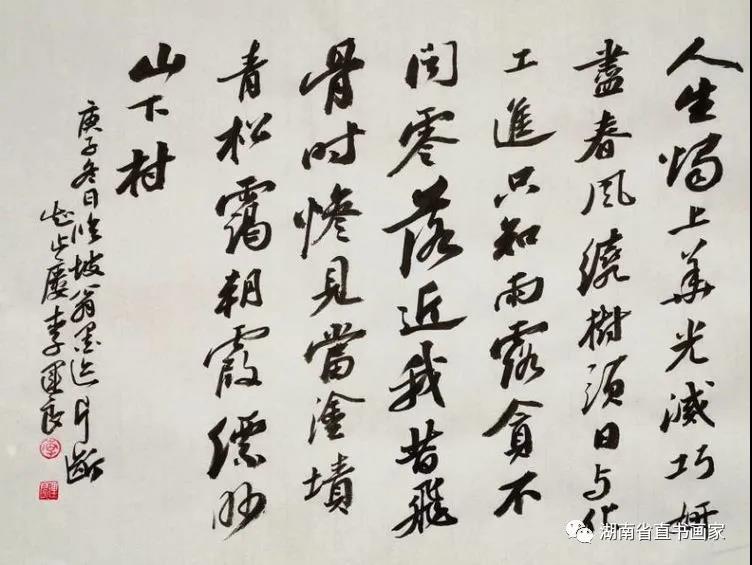 人生燭上華光滅巧妍
盡春風繞樹頭日与化
工進只知雨露貪不
聞零落近我昔飛
骨時慘見當塗墳
青松靄朝霞縹眇
山下村
庚子冬日臨坡翁墨迹片斷
止廔李良
湖南省直书画家